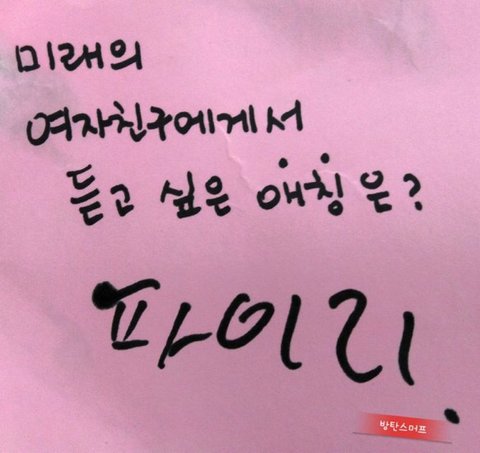 미래의
여자친구에게서
듣고 싶은 애칭은?
파이리.
방탄스머프